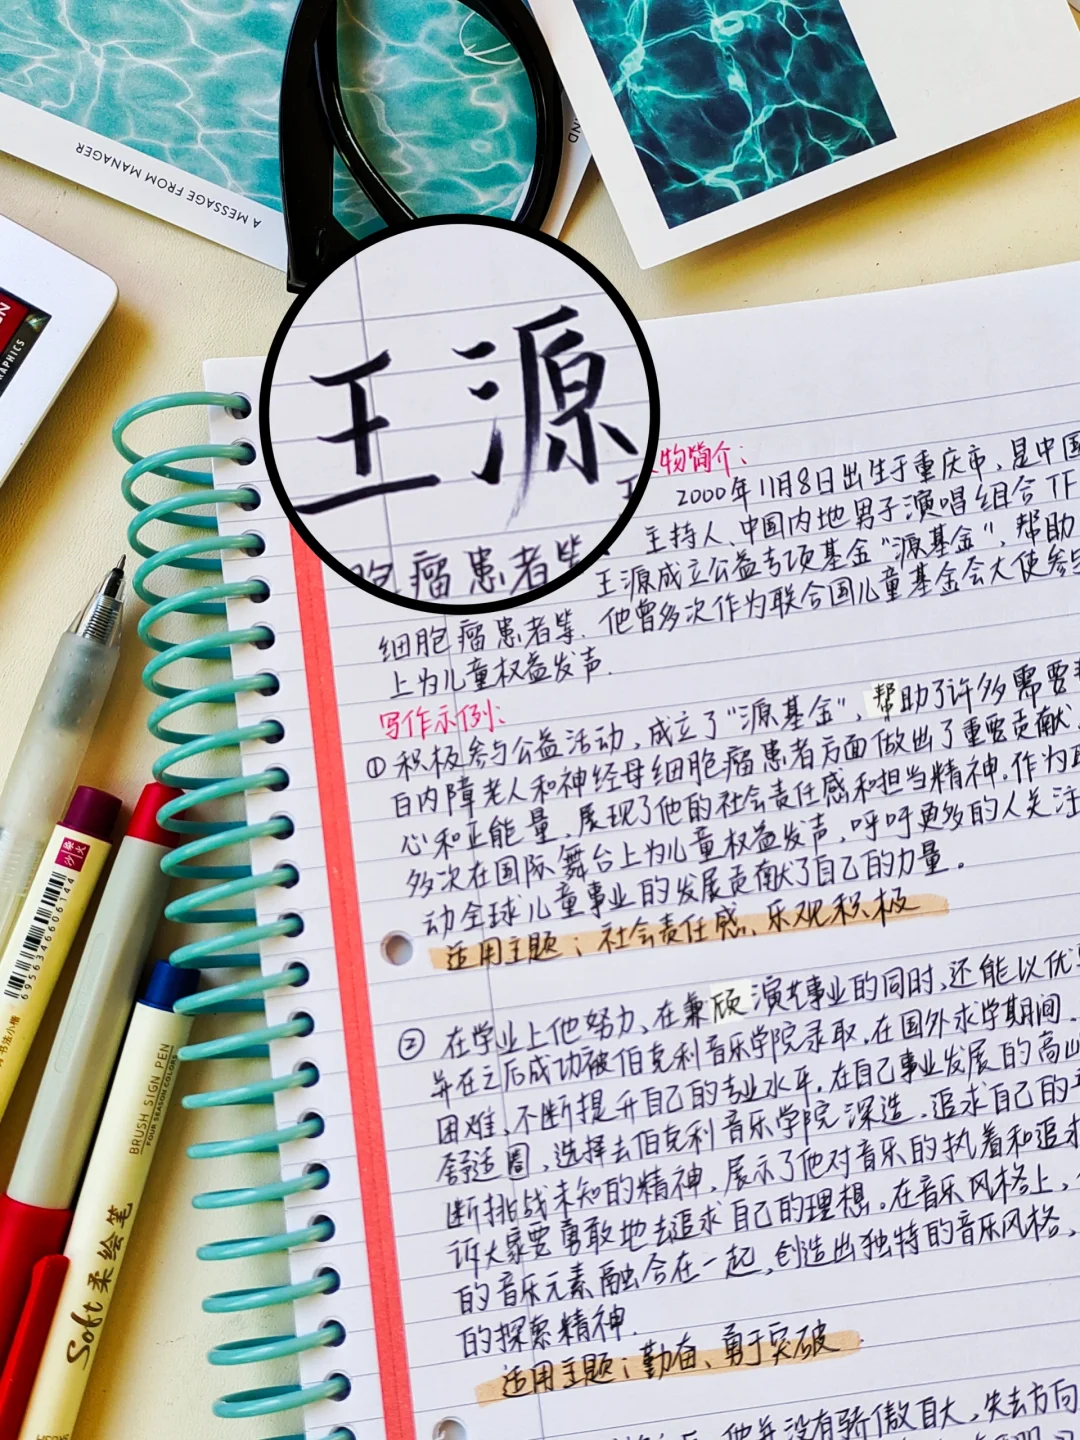 A MESSAGE FROM MANAGER
AND
APHICS
王源
胞瘤患者等
人物简介:
2000年11月8日出生于重庆市,是中国
主持人、中国内地男子演唱组合TF
王源成立公益专项基金“源基金”,帮助
细胞瘤患者等.他曾多次作为联合国儿童基金会大使参与
上为儿童权益发声.
写作示例:
①积极参与公益活动,成立了“源基金”,帮助了许多需要帮
白内障老人和神经母细胞瘤患者方面做出了重要贡献
心和正能量,展现了他的社会责任感和担当精神.作为联
多次在国际舞台上为儿童权益发声,呼吁更多的人关注
动全球儿童事业的发展贡献了自己的力量。
适用主题:社会责任感、乐观积极
②在学业上他努力,在兼顾演艺事业的同时,还能以优异
并在之后成功被伯克利音乐学院录取.在国外求学期间.
困难,不断提升自己的专业水平.在自己事业发展的高山
舒适圈,选择去伯克利音乐学院深造.追求自己的
断挑战未知的精神,展示了他对音乐的执着和追求
诉大家要勇敢地去追求自己的理想.在音乐风格上,
的音乐元素融合在一起,创造出独特的音乐风格,
的探索精神.
适用主题:勤奋、勇于突破
他并没有骄傲自大,失去方向
6956346606144
BRUSH SIGN PEN
FOUR SEASON COLORS
Soft柔绘笔